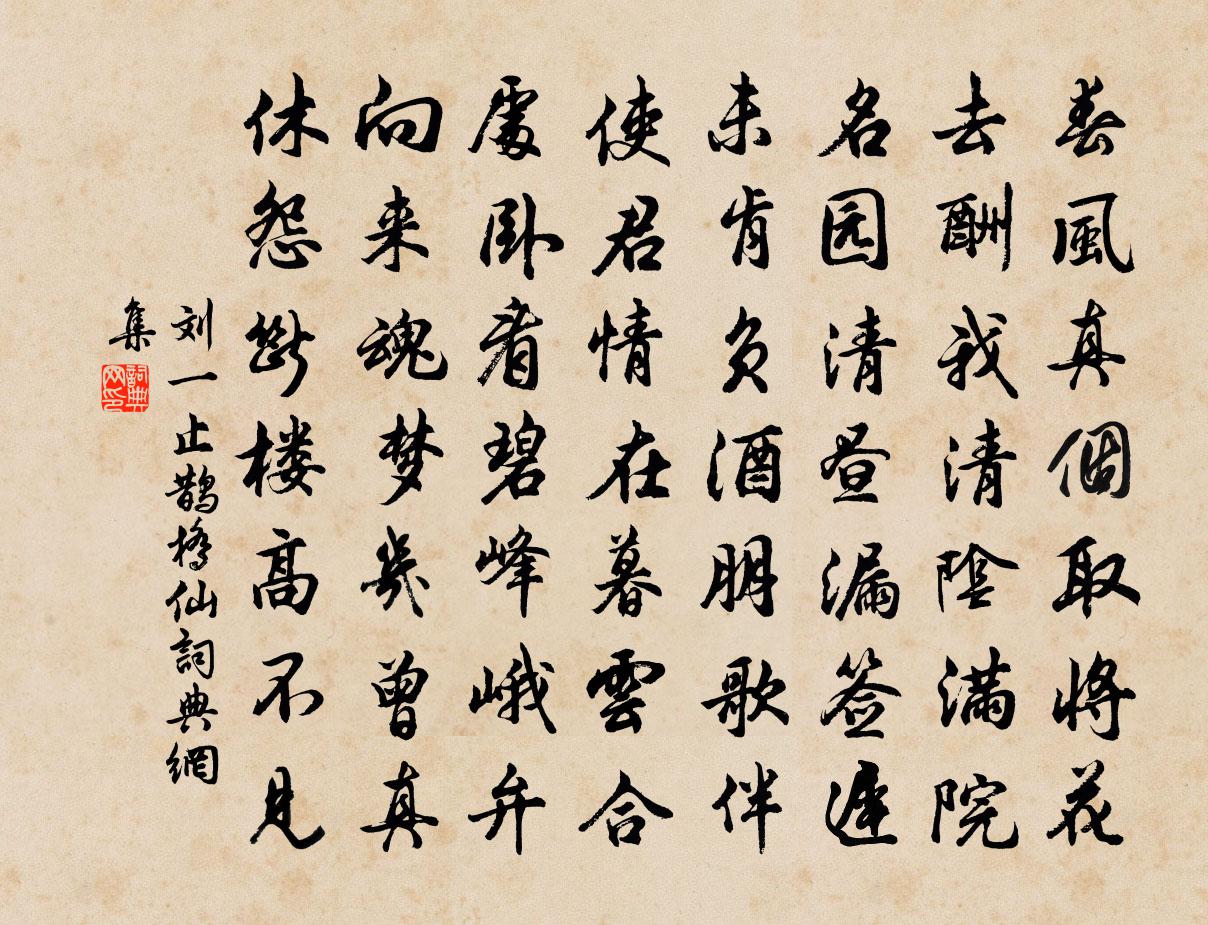 春風真個取將花
去酬我清陰滿院
名园清昼漏签遲
未肯负酒朋歌伴
使君情在暮雲合
處卧看碧峰峨弁
向来魂梦幾曾真
休怨斷楼高不見
刘一止鵲橋仙詞典網
集
詞典
网印